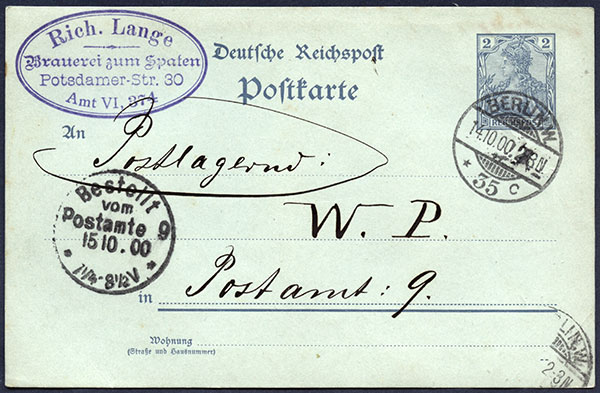 Rich. Lange
Brauerei zum Spaten
Potsdamer-Str. 30
Amt VI, 374
Deutsche Reichspost
Postkarte
2 2
REICHSPOST
BERLIN.W.
14.10.00
* 35 c
An
Postlagernd:
W. P.
in Postamt: 9.
Bestellt
vom
Postamte 9
15 10.00
8½V.
Wohnung
(Straße und Hausnummer)
LIN.W.
2-3N